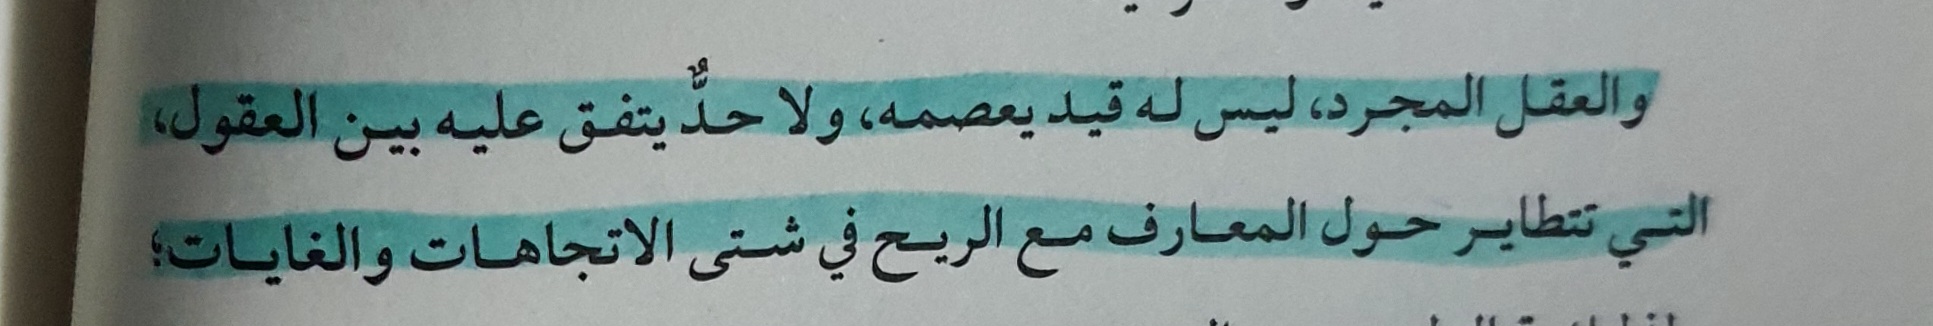 والعقل المجرد، ليس له قيد يعصمه، ولا حدٌّ يتفق عليه بين العقول،
التي تتطاير حول المعارف مع الريح في شتى الاتجاهات والغايات؛